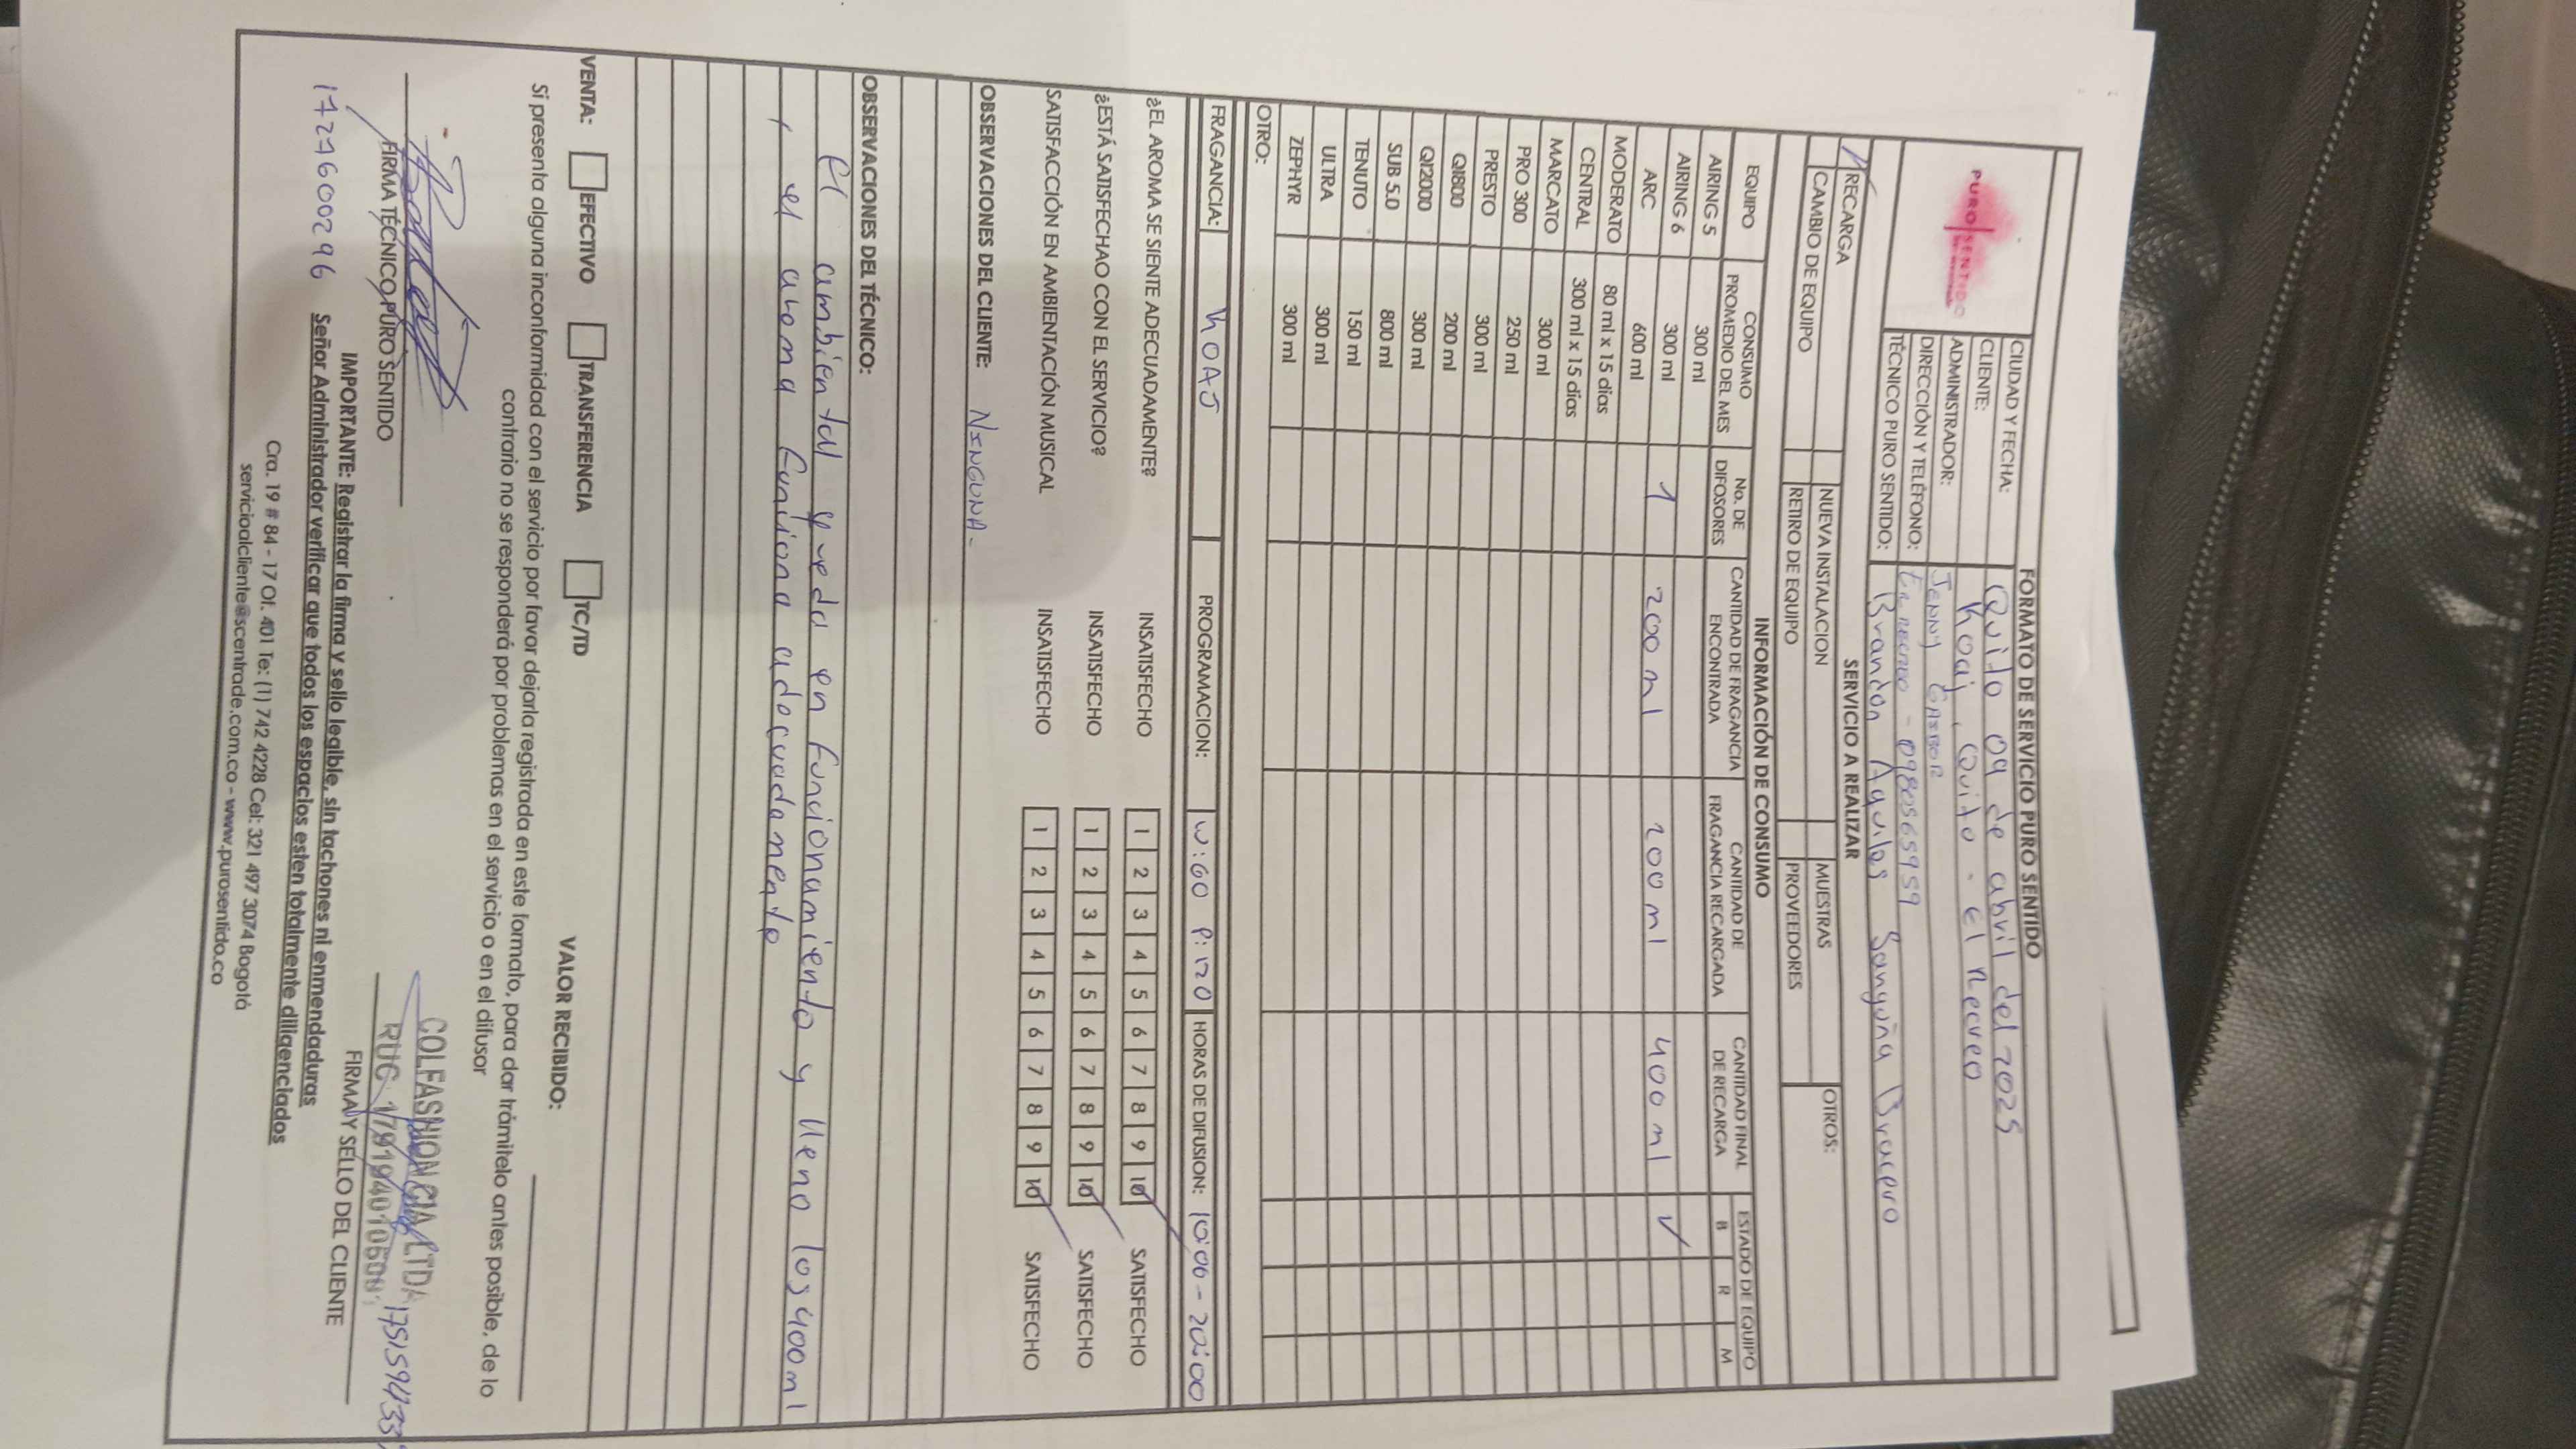 FORMATO DE SERVICIO PURO SENTIDO
PURO SENTIDO
CIUDAD Y FECHA: Quito 09 de abril del 2025
CLIENTE: Koaj, Quito - El Recreo
ADMINISTRADOR: Jenny Gaibor
DIRECCIÓN Y TELÉFONO: El Recreo - 0980565959
TÉCNICO PURO SENTIDO: Brandon Aguilas Sanguña Bracero
SERVICIO A REALIZAR
RECARGA NUEVA INSTALACION MUESTRAS OTROS:
CAMBIO DE EQUIPO RETIRO DE EQUIPO PROVEEDORES
INFORMACIÓN DE CONSUMO
EQUIPO CONSUMO PROMEDIO DEL MES No. DE DIFOSORES CANTIDAD DE FRAGANCIA ENCONTRADA CANTIDAD DE FRAGANCIA RECARGADA CANTIDAD FINAL DE RECARGA ESTADO DE EQUIPO B R M
AIRING 5 300 ml
AIRING 6 300 ml 1 200 ml 200 ml 400 ml ✓
ARC 600 ml
MODERATO 80 ml x 15 dias
CENTRAL 300 ml x 15 dias
MARCATO 300 ml
PRO 300 250 ml
PRESTO 300 ml
QI800 200 ml
QI2000 300 ml
SUB 5.0 800 ml
TENUTO 150 ml
ULTRA 300 ml
ZEPHYR 300 ml
OTRO:
FRAGANCIA: KOAJ PROGRAMACION: W:60 P:120 HORAS DE DIFUSION: 10:00 - 20:00
¿EL AROMA SE SIENTE ADECUADAMENTE? INSATISFECHO 1 2 3 4 5 6 7 8 9 10 SATISFECHO
¿ESTÁ SATISFECHAO CON EL SERVICIO? INSATISFECHO 1 2 3 4 5 6 7 8 9 10 SATISFECHO
SATISFACCIÓN EN AMBIENTACIÓN MUSICAL INSATISFECHO 1 2 3 4 5 6 7 8 9 10 SATISFECHO
OBSERVACIONES DEL CLIENTE: NINGUNA-
OBSERVACIONES DEL TÉCNICO:
El ambiental queda en funcionamiento y lleno los 400 ml
y el aroma funciona adecuadamente
VENTA: EFECTIVO TRANSFERENCIA TC/TD VALOR RECIBIDO:
Si presenta alguna inconformidad con el servicio por favor dejarla registrada en este formato, para dar trámitelo antes posible, de lo
contrario no se responderá por problemas en el servicio o en el difusor
COLFASHION CIA LTDA
RUC 1791940106001 1751594733
FIRMA TÉCNICO PURO SENTIDO FIRMA Y SELLO DEL CLIENTE
1727600296
IMPORTANTE: Registrar la firma y sello legible, sin tachones ni enmendaduras
Señor Administrador verificar que todos los espacios esten totalmente diligenciados
Cra. 19 # 84 - 17 Of. 401 Te: (1) 742 4228 Cel: 321 497 3074 Bogotá
servicioalcliente@scentrade.com.co - www.purosentido.co